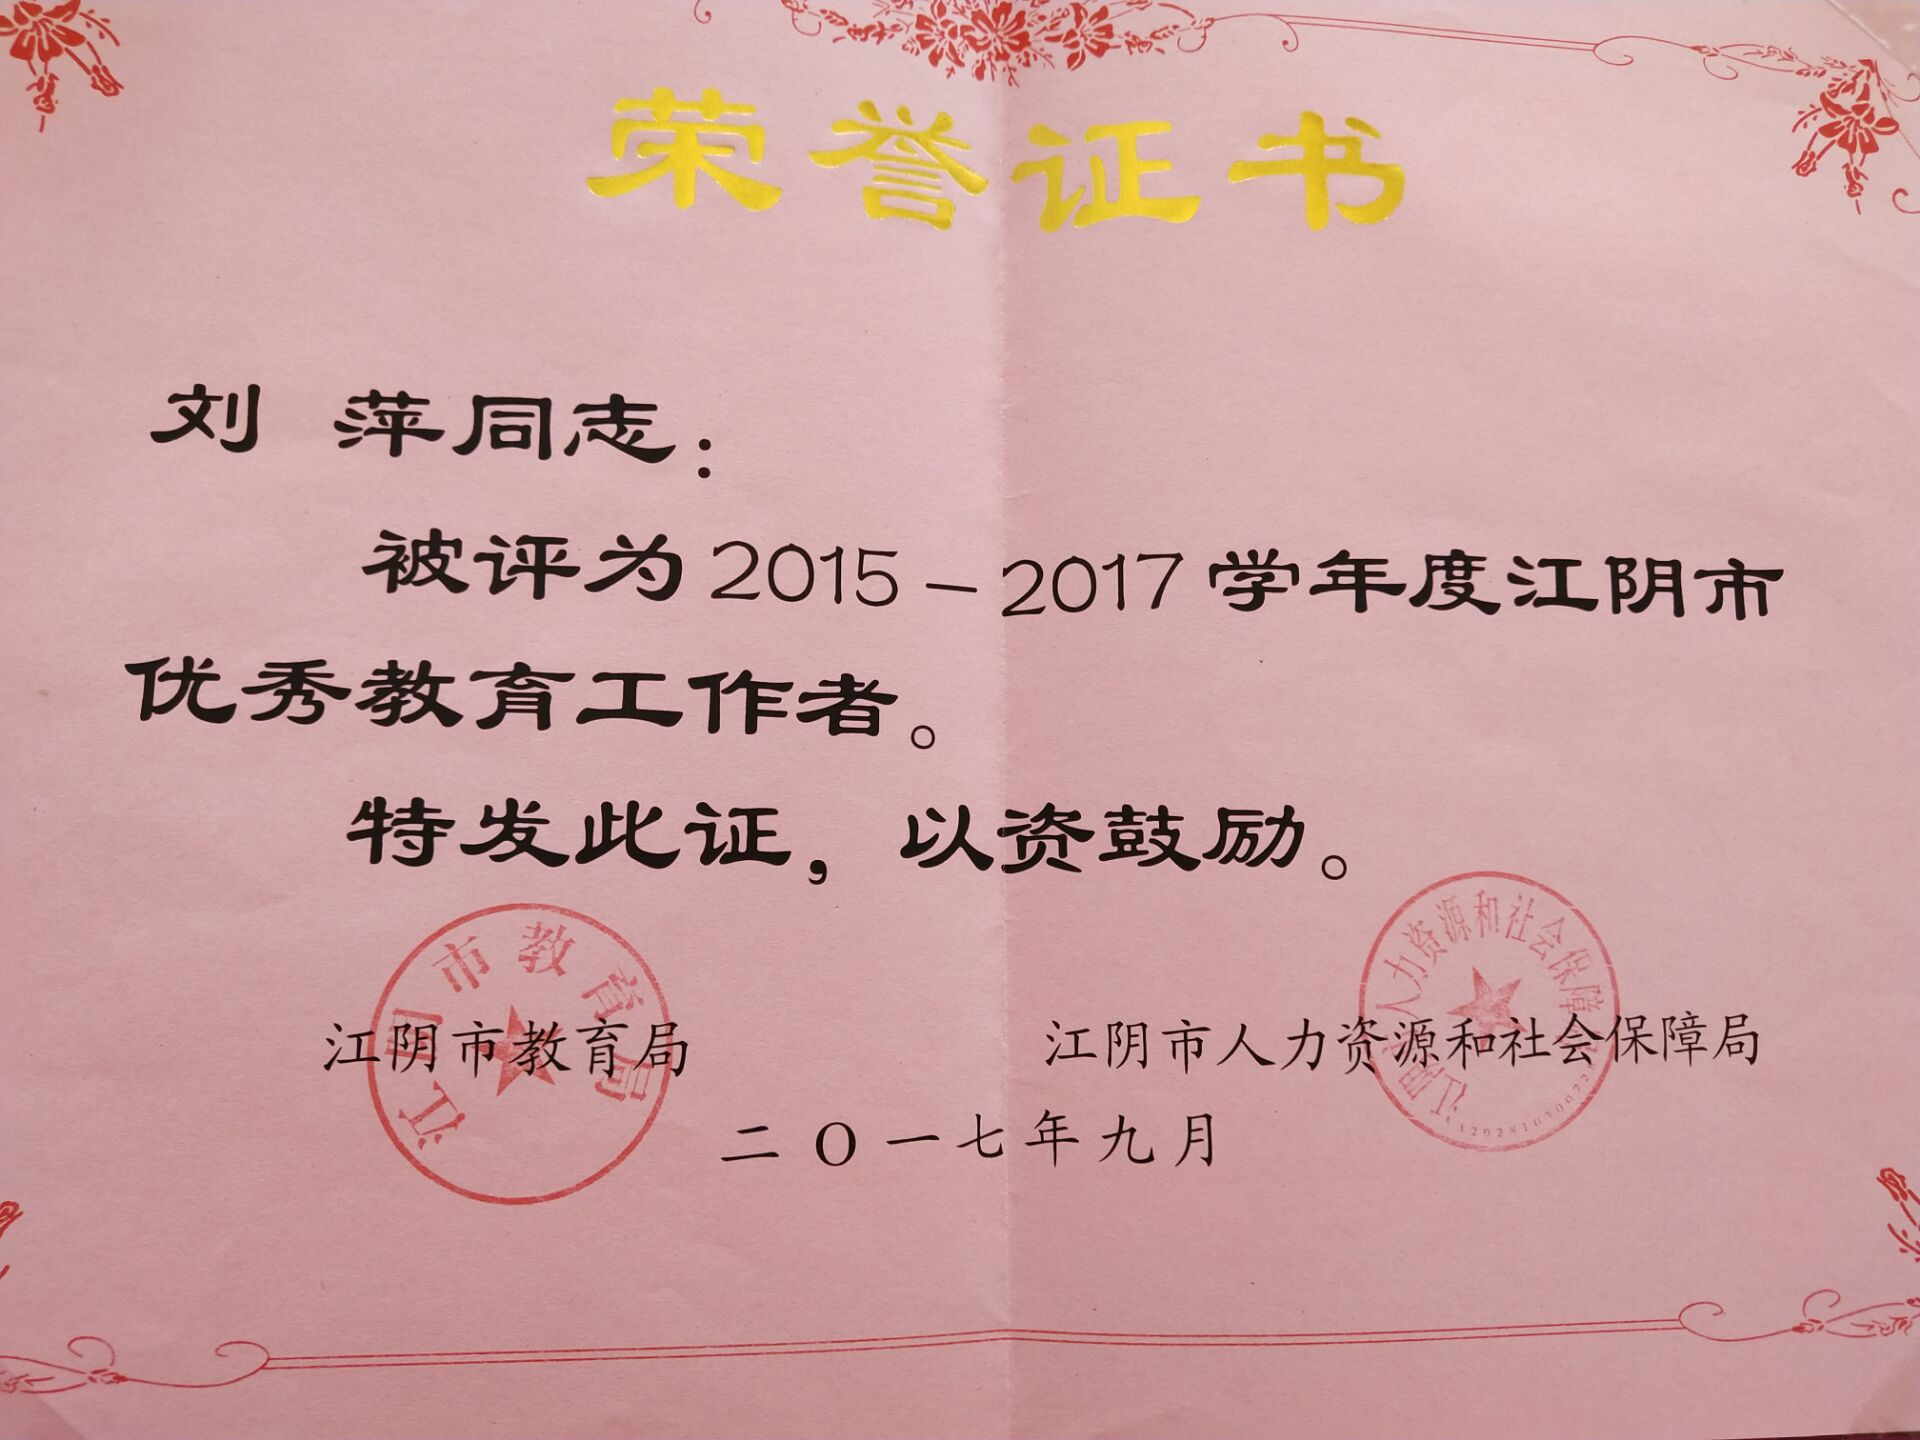 荣誉证书
刘 萍同志：
被评为2015－2017学年度江阴市
优秀教育工作者。
特发此证，以资鼓励。
江阴市教育局
江阴市人力资源和社会保障局
江阴市教育局 江阴市人力资源和社会保障局
二〇一七年九月